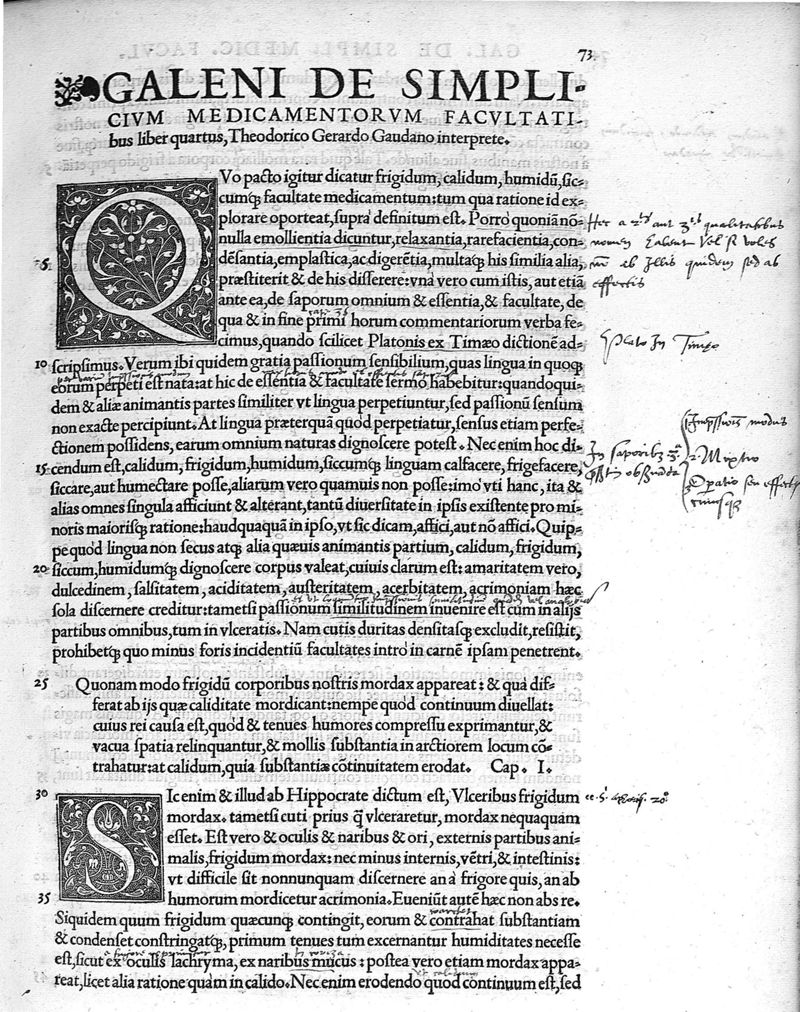 73
GALENI DE SIMPLI-
CIVM MEDICAMENTORVM FACVLTATI-
bus liber quartus, Theodorico Gerardo Gaudano interprete.
QVo pacto igitur dicatur frigidum, calidum, humidũ, sic-
cumq; facultate medicamentum: tum qua ratione id ex-
plorare oporteat, supra definitum est. Porrò quoniã nõ-
nulla emollientia dicuntur, relaxantia, rarefacientia, con-
5 dẽsantia, emplastica, ac digerẽtia, multaq; his similia alia,
præstiterit & de his disserere: vna vero cum istis, aut etiã
ante ea, de saporum omnium & essentia, & facultate, de
qua & in fine primi horum commentariorum verba fe-
cimus, quando scilicet Platonis ex Timæo dictionẽ ad-
10 scripsimus. Verum ibi quidem gratia passionum sensibilium, quas lingua in quoq;
eorum perpeti est nata: at hic de essentia & facultate sermo habebitur: quandoqui-
dem & aliæ animantis partes similiter vt lingua perpetiuntur, sed passionũ sensum
non exacte percipiunt. At lingua præterquã quòd perpetiatur, sensus etiam perfe-
ctionem possidens, earum omnium naturas dignoscere potest. Nec enim hoc di-
15 cendum est, calidum, frigidum, humidum, siccumq; linguam calfacere, frigefacere,
siccare, aut humectare posse, aliarum vero quamuis non posse: imo vti hanc, ita &
alias omnes singula afficiunt & alterant, tantũ diuersitate in ipsis existente pro mi-
noris maiorisq; ratione: haudquaquã in ipso, vt sic dicam, affici, aut nõ affici. Quip-
pe quòd lingua non secus atq; alia quæuis animantis partium, calidum, frigidum,
20 siccum, humidumq; dignoscere corpus valeat, cuiuis clarum est: amaritatem vero,
dulcedinem, salsitatem, aciditatem, austeritatem, acerbitatem, acrimoniam hæc
sola discernere creditur: tametsi passionum similitudinem inuenire est cum in alijs
partibus omnibus, tum in vlceratis. Nam cutis duritas densitasq; excludit, resistit,
prohibetq; quo minus foris incidentiũ facultates intrò in carnẽ ipsam penetrent.
25 Quonam modo frigidũ corporibus nostris mordax appareat: & qua dif-
ferat ab ijs quæ caliditate mordicant: nempe quòd continuum diuellat:
cuius rei causa est, quòd & tenues humores compressu exprimantur, &
vacua spatia relinquantur, & mollis substantia in arctiorem locum cõ-
trahatur: at calidum, quia substantiæ cõtinuitatem erodat. Cap. I.
30 SIc enim & illud ab Hippocrate dictum est, Vlceribus frigidum
mordax. tametsi cuti prius q̃ vlceraretur, mordax nequaquam
esset. Est vero & oculis & naribus & ori, externis partibus ani-
malis, frigidum mordax: nec minus internis, vẽtri, & intestinis:
vt difficile sit nonnunquam discernere an à frigore quis, an ab
35 humorum mordicetur acrimonia. Eueniũt autẽ hæc non abs re.
Siquidem quum frigidum quæcunq; contingit, eorum & contrahat substantiam
& condenset constringatq;, primum tenues tum excernantur humiditates necesse
est, sicut ex oculis lachryma, ex naribus mucus: postea vero etiam mordax appa-
reat, licet alia ratione quàm in calido. Nec enim erodendo quòd continuum est, sed
Plato in Timęo